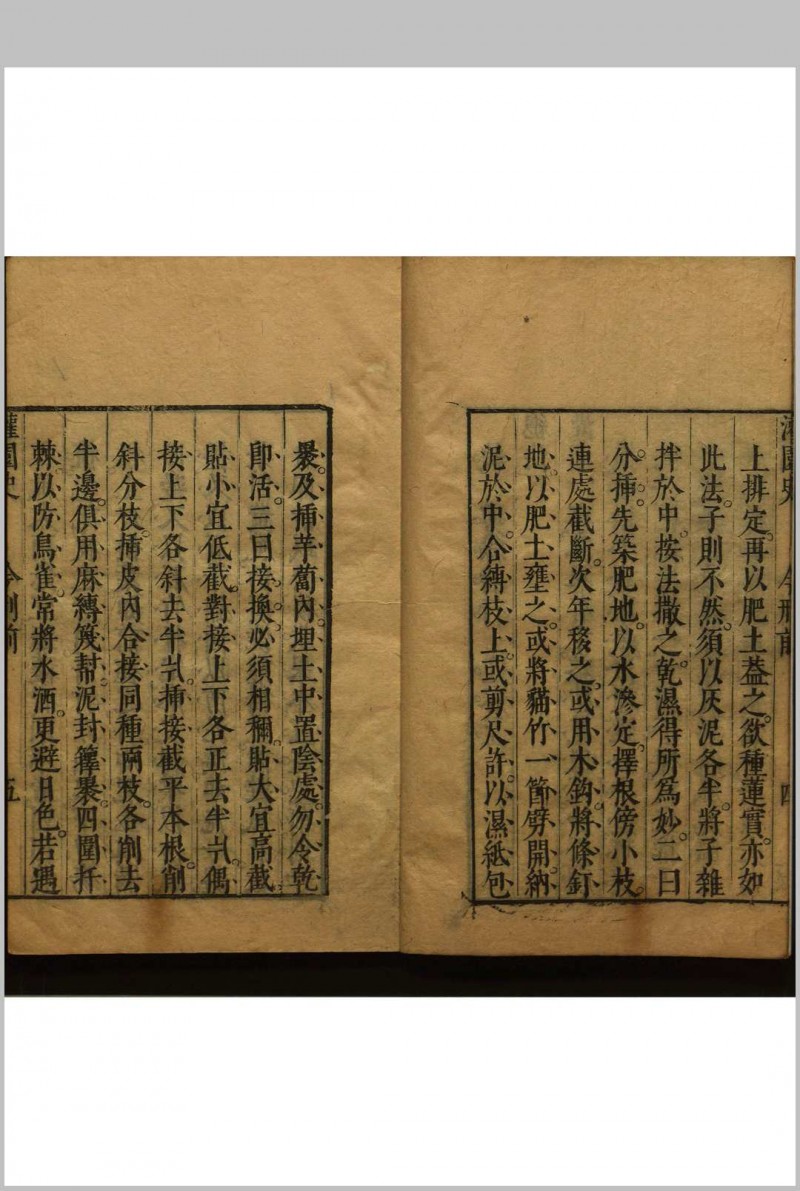 上排定。再以肥土蓋之。欲種蓮實。亦如
此法。子則不然。須以灰泥各半。將子雜
拌於中。按法撒之。乾濕得所爲妙。二曰
分插。先築肥地。以水滲定。擇根傍小枝。
連處截斷。次年移之。或用木鈎。將條釘
地。以肥土壅之。或將貓竹一節。劈開。納
泥於中。合縛枝上。或剪尺許。以濕紙包
裹。及插芋蔔內。埋土中。置陰處。勿令乾。
卽活。三曰接換。必須相稱。貼大宜高截。
貼小宜低截。對接上下各正去半爿。偶
接上下各斜去半爿。插接截平本根。削
斜分枝。插皮內。合接同種兩枝。各削去
半邊。俱用麻縛。篾幇泥封。籜裹。四圍扦
棘。以防鳥雀。常將水洒。更避日色。若遇
灌園史 今刑前 四
灌園史 今刑前 五